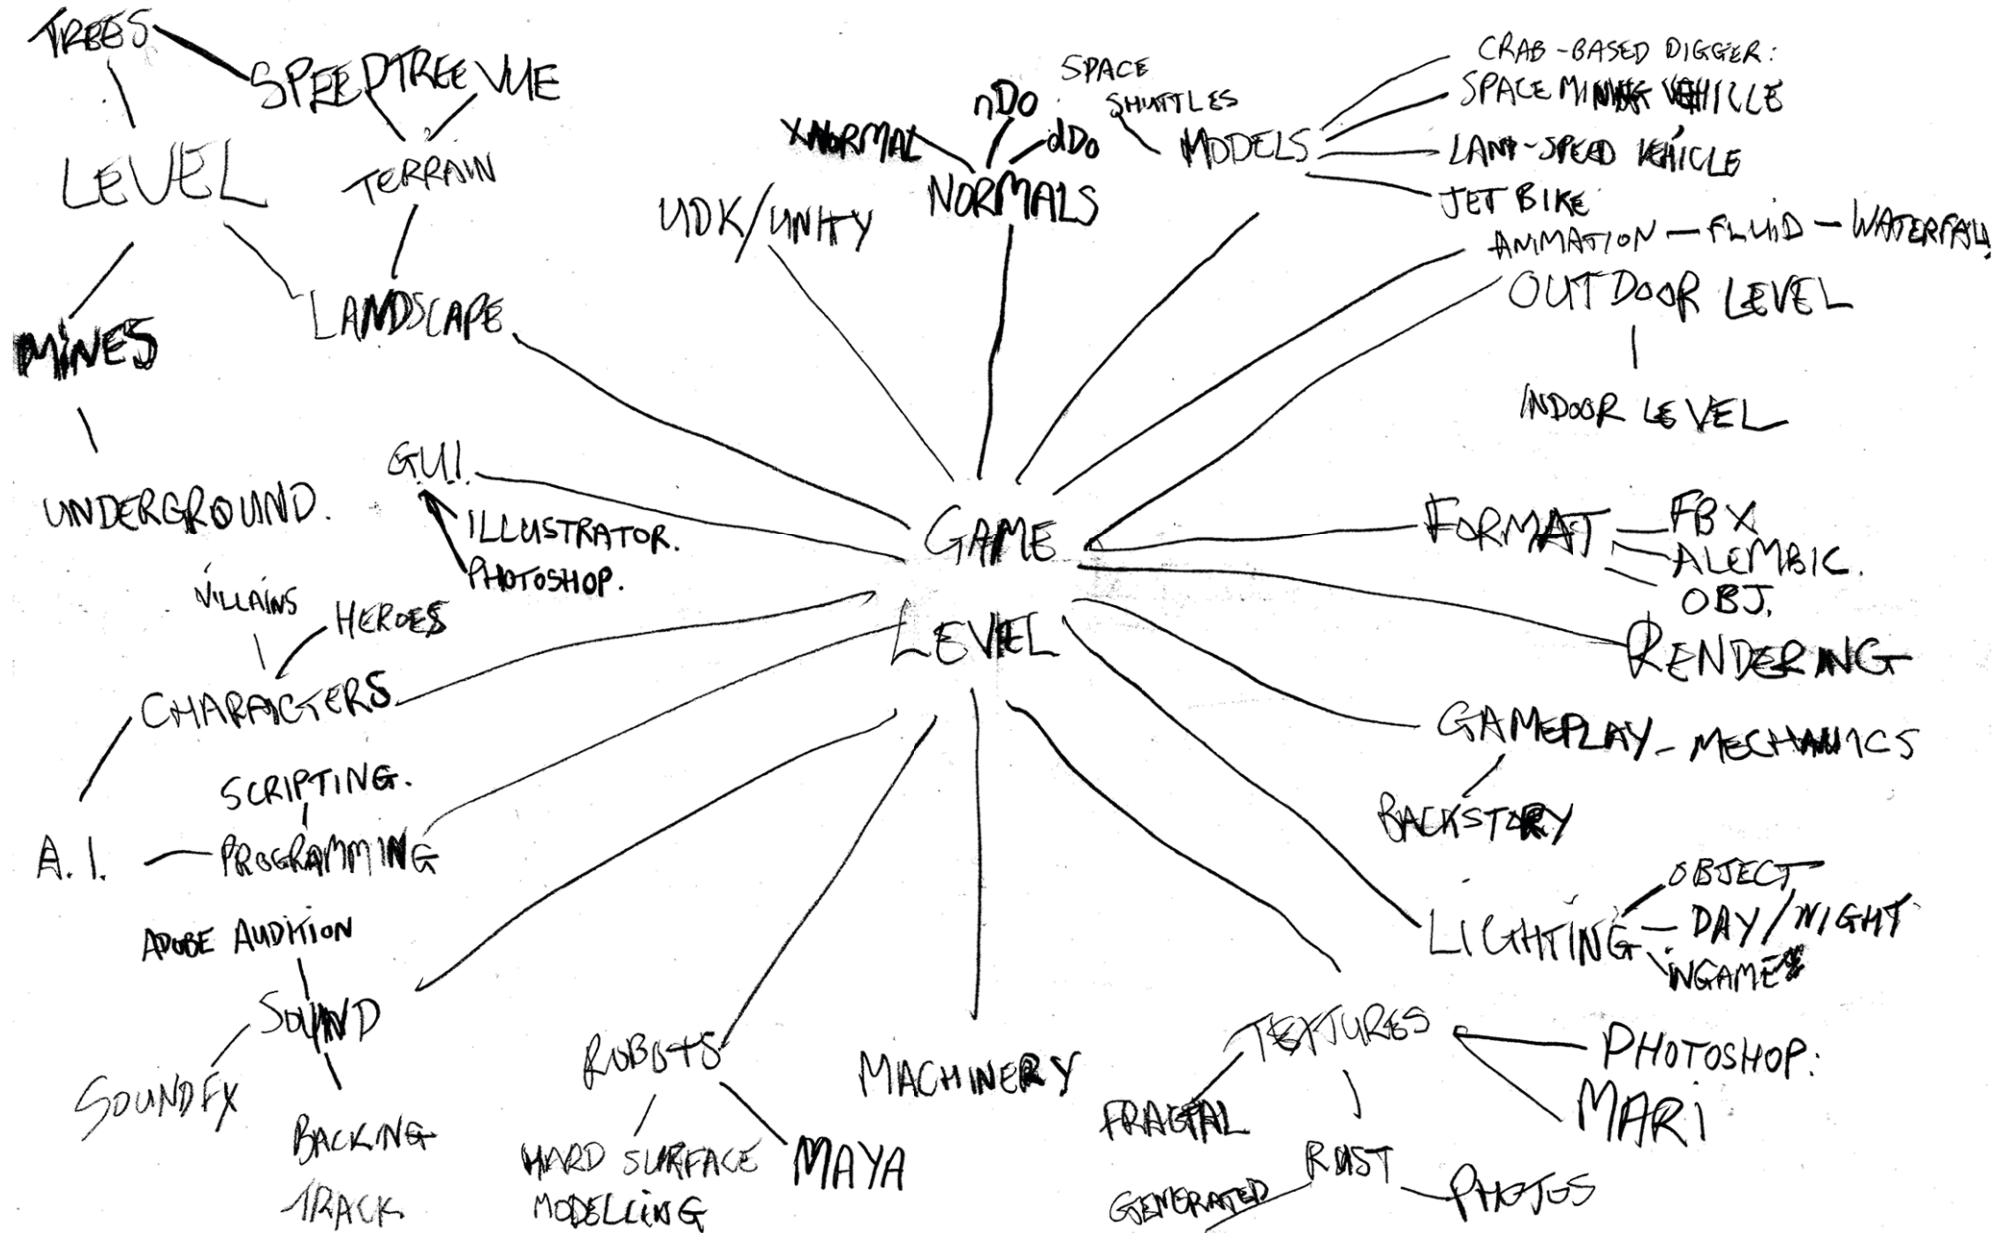 TREES
SPEEDTREE VUE
LEVEL
TERRAIN
MINES
LANDSCAPE
UNDERGROUND.
UDK/UNITY
XNORMAL
nDO
dDO
NORMALS
SPACE
SHUTTLES
MODELS
CRAB-BASED DIGGER:
SPACE MINING VEHICLE
LAND-SPEED VEHICLE
JET BIKE
ANIMATION - FLUID - WATERFALL
OUTDOOR LEVEL
INDOOR LEVEL
G.U.I.
ILLUSTRATOR.
PHOTOSHOP.
GAME
LEVEL
FORMAT
FBX
ALEMBIC.
OBJ.
RENDERING
VILLAINS
HEROES
CHARACTERS
GAMEPLAY - MECHANICS
BACKSTORY
SCRIPTING.
A.I.
PROGRAMMING
LIGHTING
OBJECT
DAY/NIGHT
INGAME
ADOBE AUDITION
SOUND
SOUND FX
BACKING
TRACK
ROBOTS
HARD SURFACE
MODELLING
MAYA
MACHINERY
TEXTURES
PHOTOSHOP:
MARI
FRACTAL
RUST
GENERATED
PHOTOS